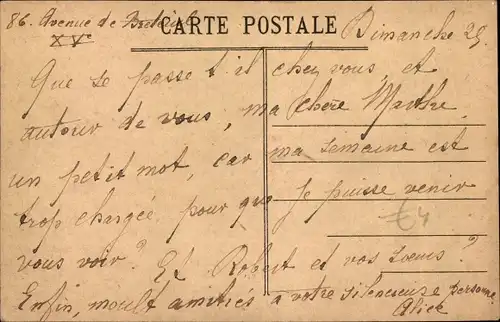 86. Avenue de Breteuil
XVe
CARTE POSTALE
Dimanche 25.
Que se passe t il chez vous, et
autour de vous, ma chère Marthe,
un petit mot, car ma semaine est
trop chargée pour que je puisse venir
vous voir? Et Robert et vos soeurs?
Enfin, moult amitiés à votre silencieuse personne
Alice
€4